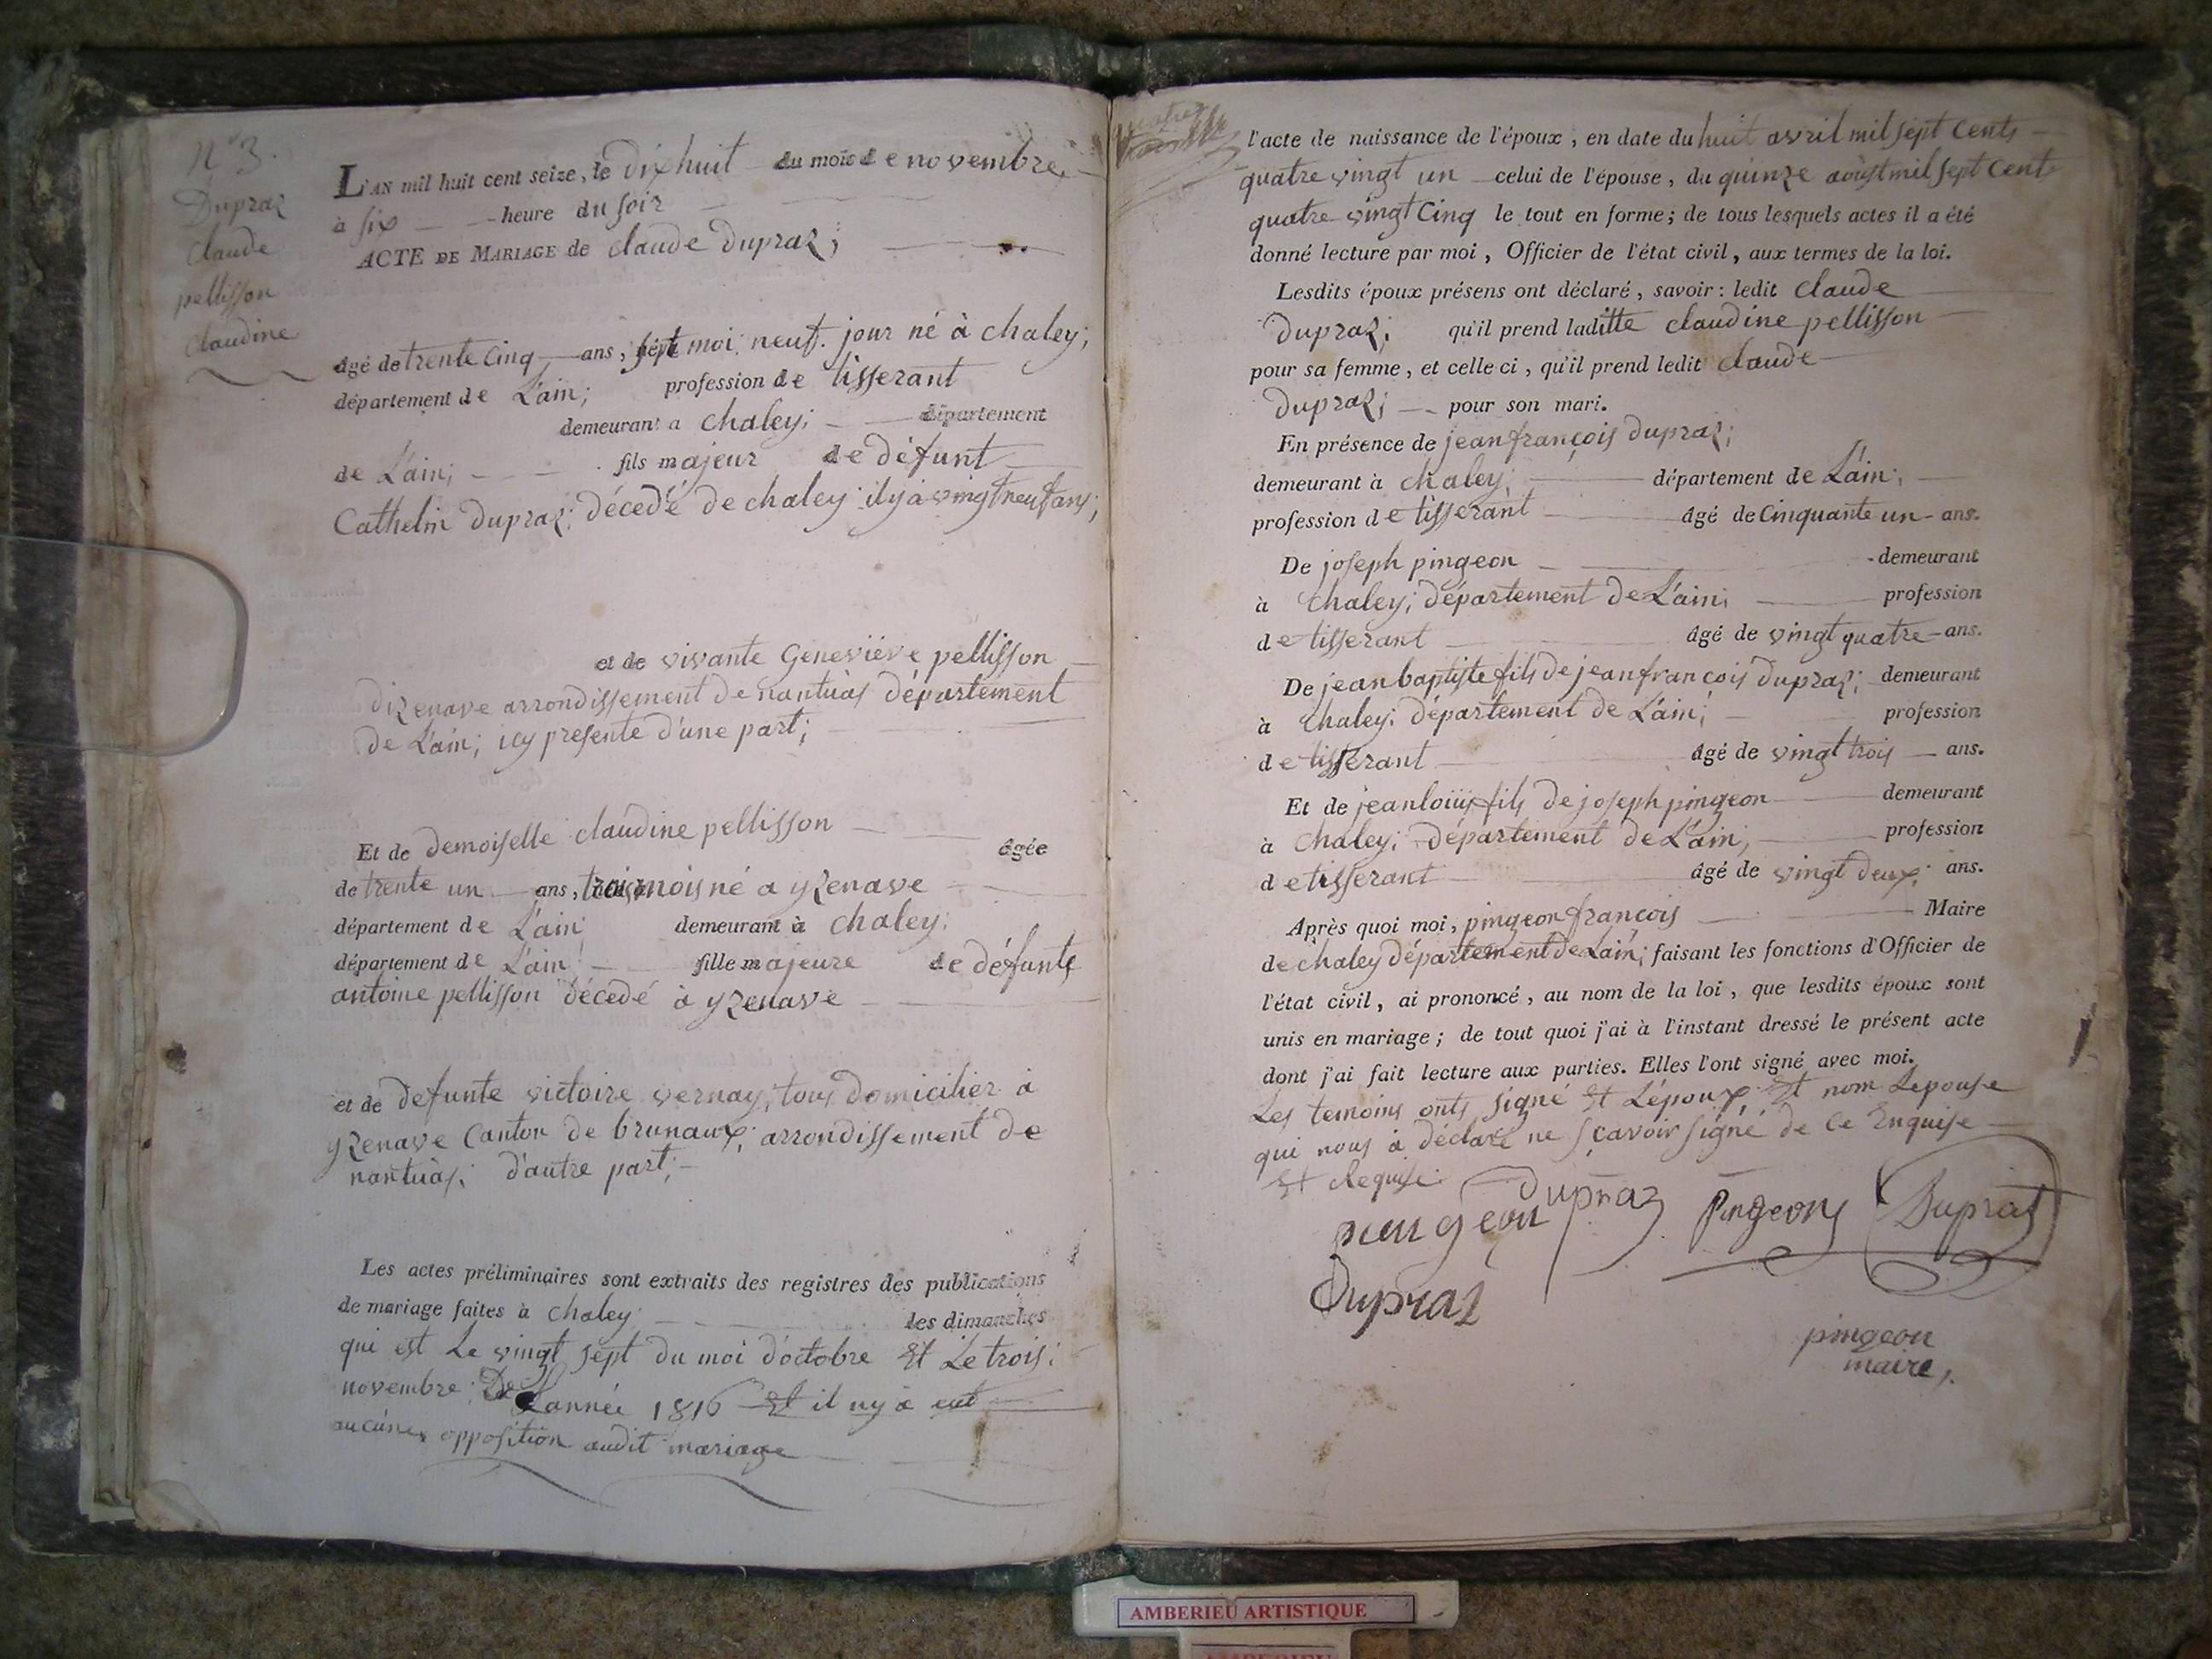 N° 3.
Dupraz
Claude
pellisson
claudine
L'AN mil huit cent seize, le dix huit du mois de novembre
à six heure du soir
ACTE DE MARIAGE de claude Dupraz;
âgé de trente cinq ans, sept moi neuf jour né à chaley;
département de L'ain; profession de tisserant
demeurant a chaley; département
de L'ain; fils majeur de défunt
Cathelin Dupraz; décedé de chaley il y a vingt neuf ans;
et de vivante Geneviéve pellisson
dizenave arrondissement de nantuas département
de L'ain; icy presente d'une part;
Et de demoiselle claudine pellisson âgée
de trente un ans, trois mois né a yzenave
département de L'ain demeurant à chaley;
département de L'ain fille majeure de défunte
antoine pellisson décedé à yzenave
et de defunte victoire vernay, tous domicilier à
yzenave Canton de brunaux; arrondissement de
nantuas; d'autre part;
Les actes préliminaires sont extraits des registres des publications
de mariage faites à chaley les dimanches
qui est Le vingt sept du moi d'octobre Et Le trois;
novembre; De L'année 1816 Et il ny à eut
aucunes opposition audit mariage
l'acte de naissance de l'époux, en date du huit avril mil sept Cents
quatre vingt un celui de l'épouse, du quinze août mil sept Cent
quatre vingt Cinq le tout en forme; de tous lesquels actes il a été
donné lecture par moi, Officier de l'état civil, aux termes de la loi.
Lesdits époux présens ont déclaré, savoir: ledit Claude
Dupraz; qu'il prend laditte claudine pellisson
pour sa femme, et celle ci, qu'il prend ledit claude
Dupraz; pour son mari.
En présence de jean françois Dupraz;
demeurant à chaley; département de L'ain;
profession de tisserant âgé de Cinquante un ans.
De joseph pingeon demeurant
à Chaley; département de L'ain; profession
de tisserant âgé de vingt quatre ans.
De jean baptiste fils de jean francois Dupraz; demeurant
à Chaley; département de L'ain; profession
de tisserant âgé de vingt trois ans.
Et de jean loüis fils de joseph pingeon demeurant
à Chaley; département de L'ain; profession
de tisserant âgé de vingt deux; ans.
Après quoi moi, pingeon françois Maire
de chaley département de L'ain; faisant les fonctions d'Officier de
l'état civil, ai prononcé, au nom de la loi, que lesdits époux sont
unis en mariage; de tout quoi j'ai à l'instant dressé le présent acte
dont j'ai fait lecture aux parties. Elles l'ont signé avec moi.
Les temoins onts signé Et L'époux Et nom Lepouse
qui nous à déclaré ne sçavoir signé de Ce Enquise
Et Requise
Dupraz
pingeon Pingeon Dupraz
Dupraz
pingeon
maire,
AMBERIEU ARTISTIQUE